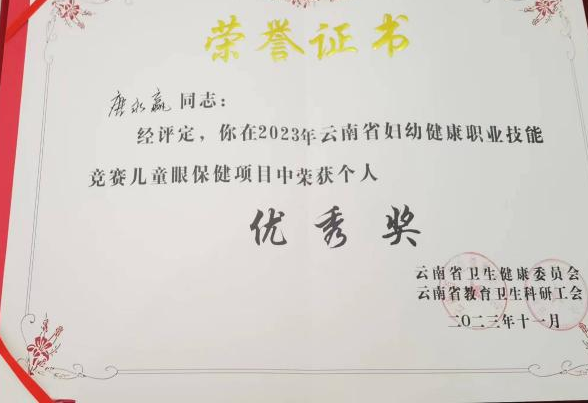 荣誉证书
唐永赢 同志：
经评定，你在2023年云南省妇幼健康职业技能
竞赛儿童眼保健项目中荣获个人
优秀奖
云南省卫生健康委员会
云南省教育卫生科研工会
二〇二三年十一月